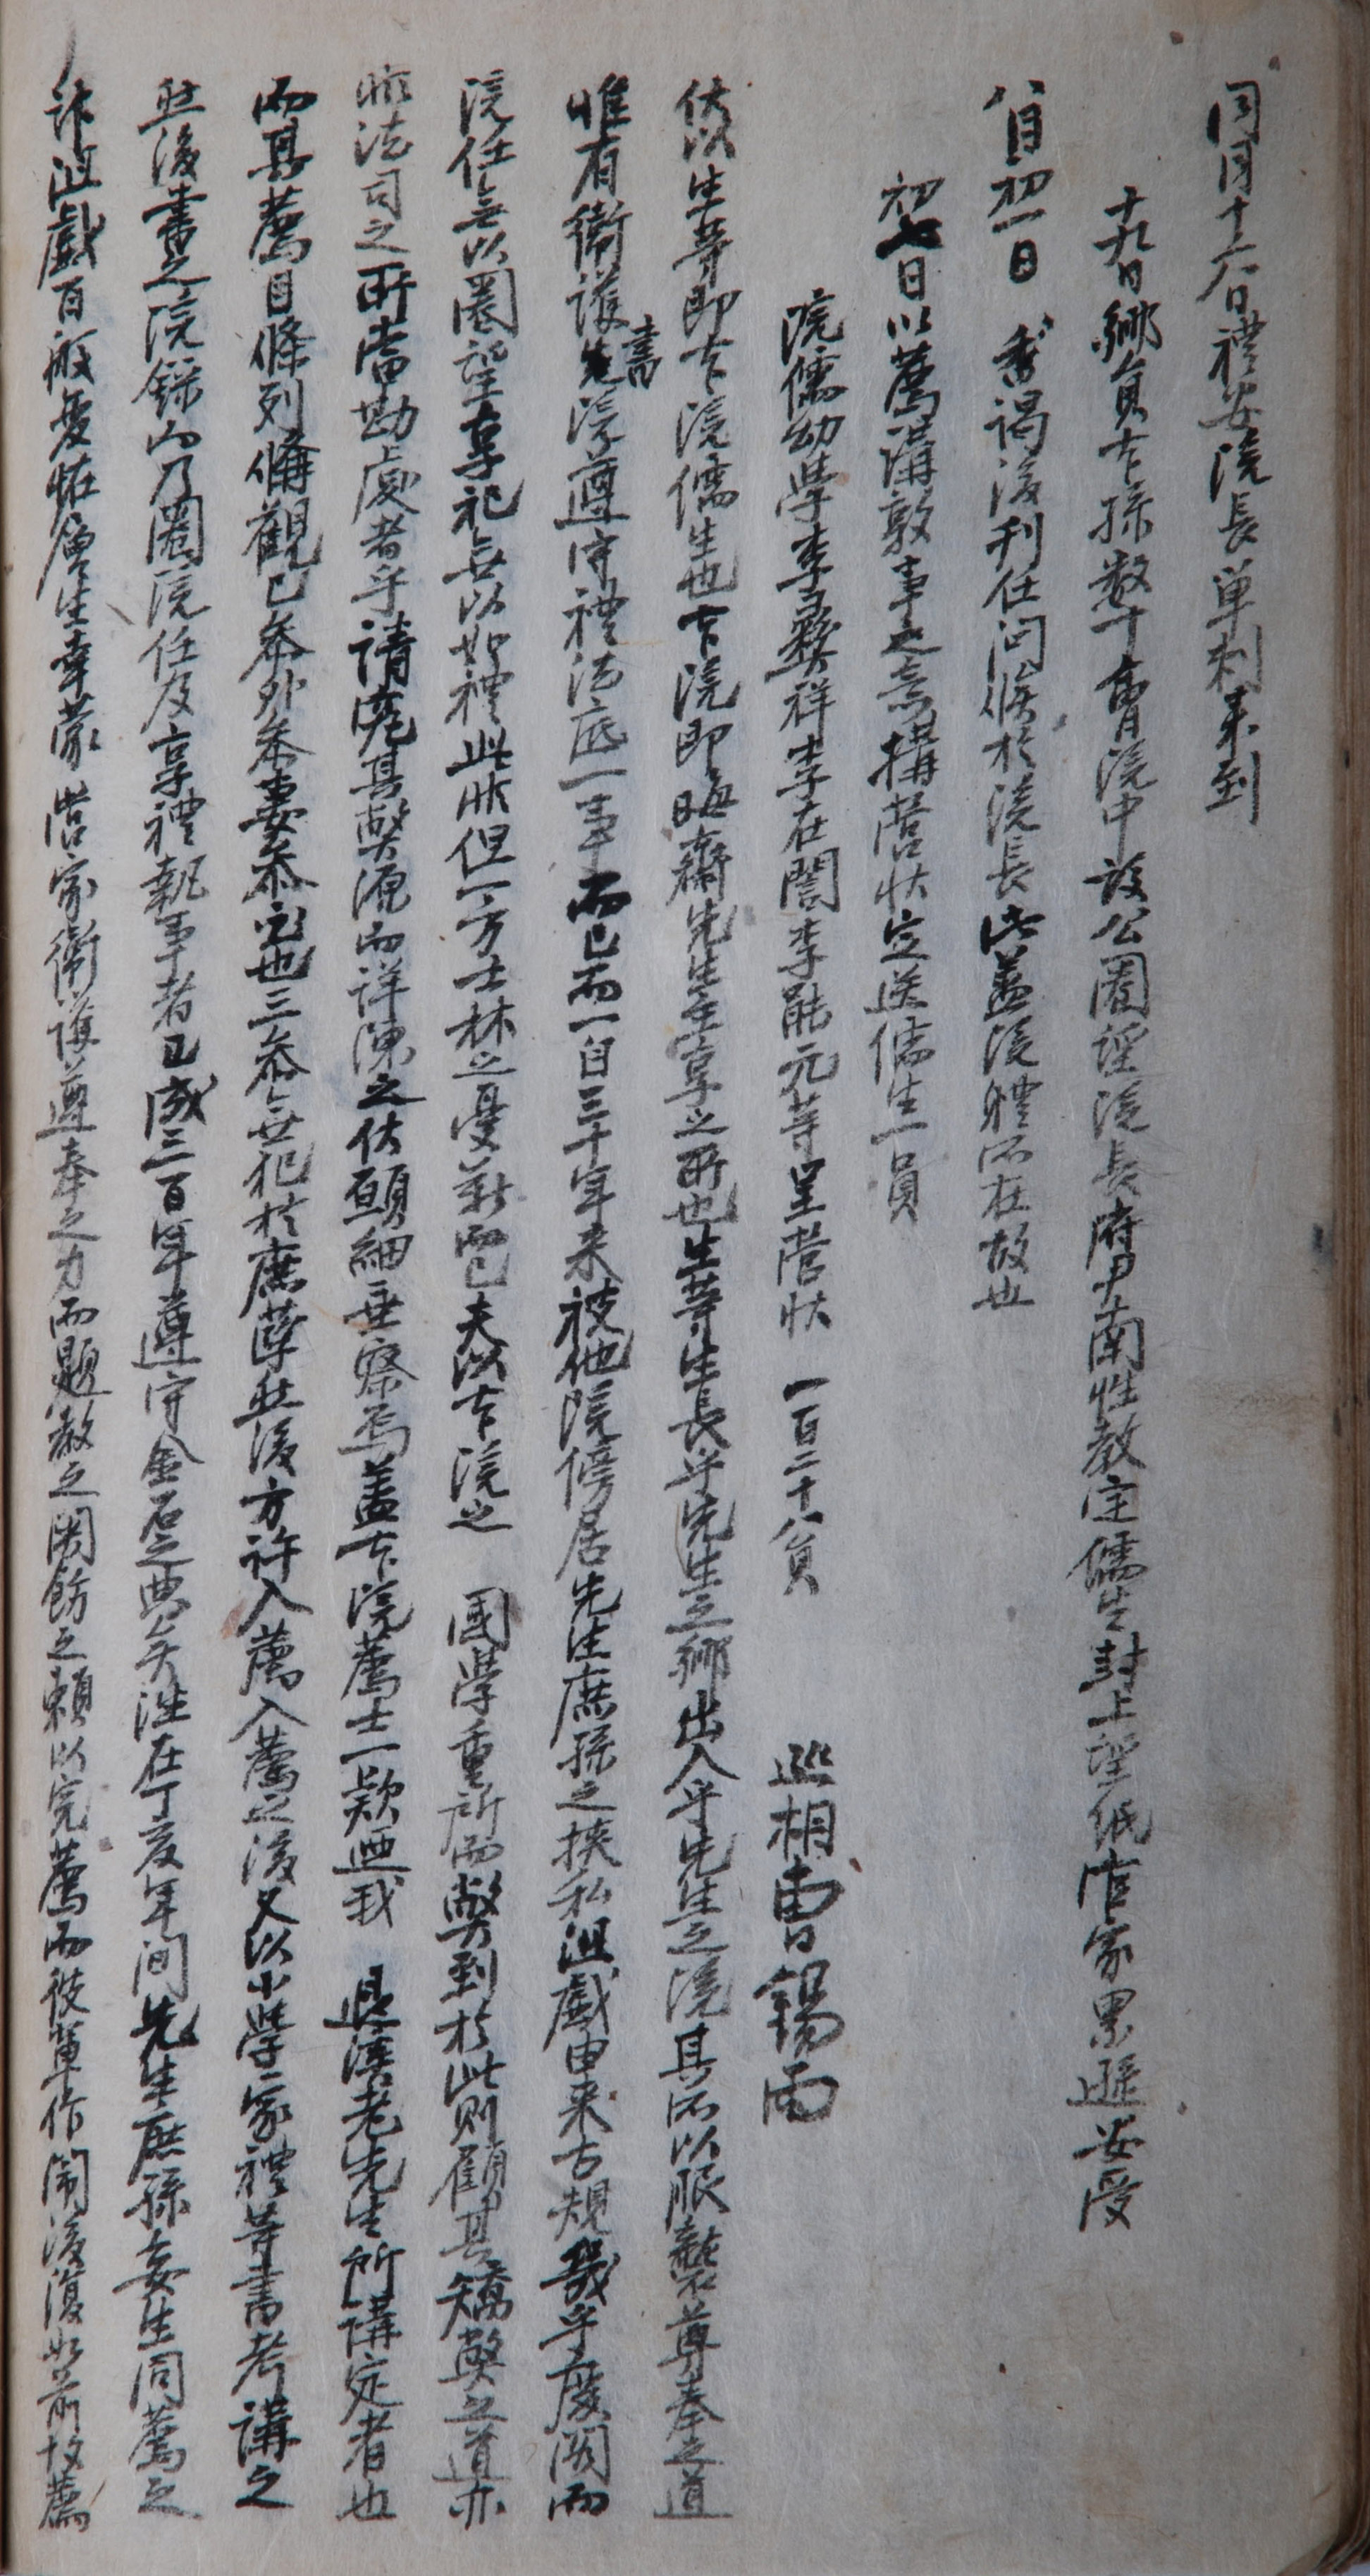 同月十六日禮安院長單刺來到
十九日鄕員古孫數十會院中設公圈望院長府尹南性敎定儒生封上望紙官家累遜安受
八月初一日 香謁後刊任問候於院長此盖院體所在故也
初七日以薦講敦事之意搆營狀定送儒生一員
院儒幼學李彛祥李在誾李能元等呈營狀 一百二十八員 巡相曺錫雨
伏以生等卽本院儒生也本院卽晦齋先生主享之所也生等生長乎先生之鄕出入乎先生之院其所以服襲尊奉之道
惟有衛護先書院遵守禮法底一事而已而一自三十年來被他院傍居先生庶孫之挾私沮戲由來古規幾乎廢閣而
院任無以圈望享祀無以如禮此非但一方士林之憂歎而已夫以本院之 國學重所而弊到於此則顧其矯弊之道亦
非法司之所當勘處者乎請先其弊源而詳陳之伏願細垂察焉盖本院薦士一款迺我 退溪老先生所講定者也
而其薦目條列備觀已參外參妻參也三參無犯於庶孽然後方許入薦入薦之後又以小學家禮等書考講之
然後書之院錄而乃圈院任及享禮執事者已成三百年遵守金石之典矣洪在丁亥年間先生庶孫妄生同薦之
計沮戲百般變怪層生幸蒙 營家衛護遵奉之力而題敎之関飭之賴以完薦而彼輩作閙後復如前故薦